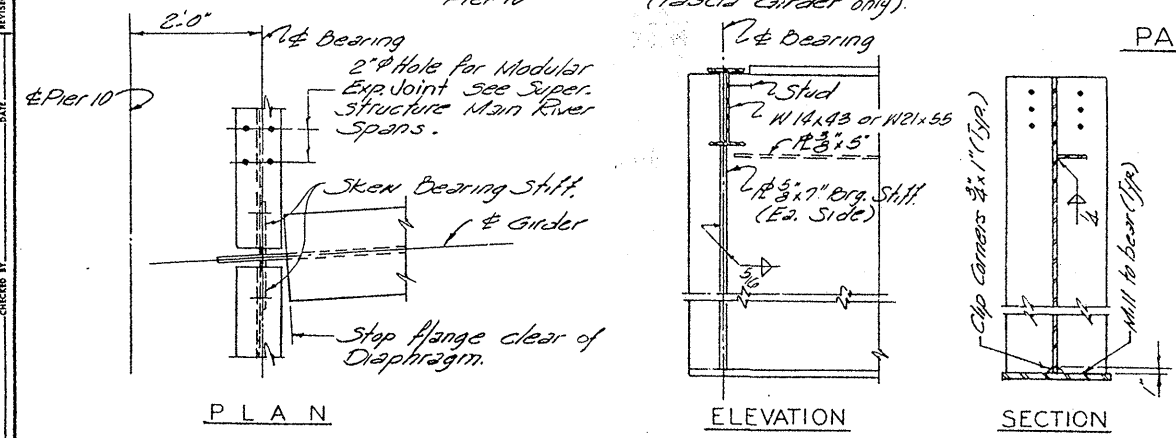 REVISED
DATE
CHECKED BY
Pier 10
(Fascia Girder only).
PA
2'-0"
℄ Bearing
2"ø Hole for Modular
Exp. Joint see Super-
structure Main River
Spans.
℄ Pier 10
Skew Bearing Stiff.
℄ Girder
Stop flange clear of
Diaphragm.
PLAN
℄ Bearing
Stud
W14x43 or W21x55
℄ 3/8" x 5"
℄ 5/8" x 7" Brg. Stiff.
(Ea. Side)
5/16
ELEVATION
Clip Corners 3/4" x 1" (Typ.)
1/4
Mill to bear (Typ.)
1"
SECTION